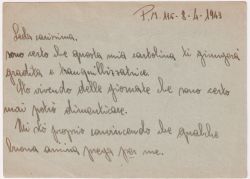 P.M. 116 - 8-4-1943
Leda carissima.
sono certo che questa mia cartolina ti giungerà
gradita e tranquillizzatrice.
Sto vivendo delle giornate che sono certo
mai potrò dimenticare.
Mi sto proprio convincendo che qualche
buona anima prega per me.